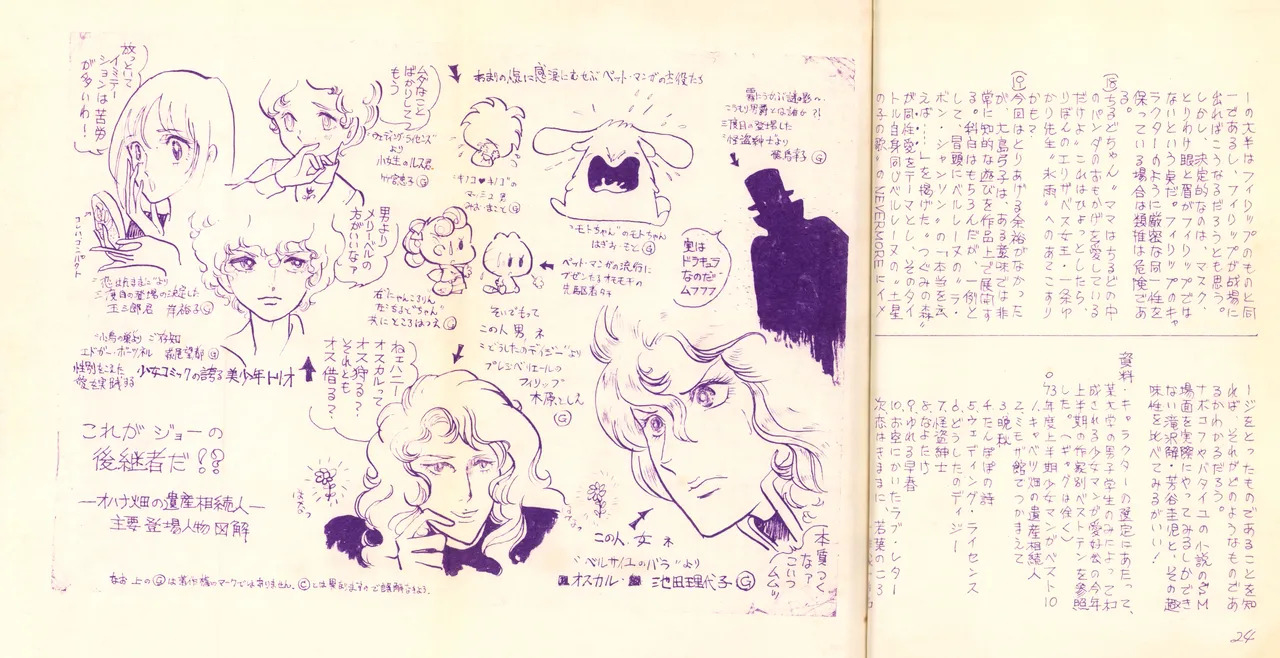 一の大半はフィリップのものと同
一であるし、フィリップが成場に
出ればこうなるだろうとも思う。
しかし、決定的なのは、マスク、
とりわけ眼と眉がフィリップでは
ないという点だ。フィリップのキャ
ラクターのように厳密な同一性を
保っている場合は類推は危険であ
る。
⑱ちるどちゃん。ママはちるどの中
のパンダのおもかげを愛している
だけよ。これはひょっとしたら、
りぼんのエリザベス女王・一条ゆ
かり先生〝氷雨〟へのあてこすり
かも?
⑲今回はとりあげる余裕がなかった
が、大島弓子は、ある意味では非
常に知的な遊びを作品上で展開す
る。科白はもちろんだが、一例と
して、冒頭にベルレーヌの〝ラ・
ボン・シャンソン〟の「本当を云
えば……」を掲げた〝つぐみの森〟
が同性愛をテーマとし、そのタイ
トル自身同じベルレーヌの〝土星
の子の歌〟のNEVERMOREにイメ
ージをとったものであることを知
れば、それがどのようなものであ
るかわかるだろう。
ナボコフやバタイユの小説のSM
場面を実際にやってみるしかでき
ない滝沢解・芳谷圭児と、その趣
味性を比べてみるがいい!
資料・キャラクターの選定にあたって、
某大学の男子学生のみによって构
成される少女マンガ愛好会の今年
上半期の作家別ベストテンを参照
した。(ギャグは除く)
○73年度上半期少女マンガベスト10
1.キャベツ畑の遺産相続人
2.ミモザ館でつかまえて
3.晩秋
4.たんぽぽの詩
5.ウェディング・ライセンス
6.どうしたのデイジー
7.怪盗紳士
8.なよたけ
9.ゆれる早春
10.お空にかいたラブ・レター
次点 恋はきままに、若葉のころ
24
放っといて
イミテー
ションは苦労
が多いわ!
コンパクト
〝恋はきままに〟より
三度目の登場の決定した
玉三郎君 岸裕子Ⓖ
ムダなこと
ばかりして
もう
〝ウェディング・ライセンス〟
より
小女生のルス君
竹宮恵子Ⓖ
男より
メリーベルの
方がいいなァ
〝小鳥の巣〟より ご存知
エドガー・ポーツネル 萩尾望都Ⓖ
性別をこえた
愛を実践する
少女コミックの誇る美少年トリオ
あまりの
に感涙にむせぶペット・マンガの古役たち
〝キノコ♥キノコ〟の
マッシュ君
みおいまことⒼ
〝モトちゃん〟のモトちゃん
はぎお・もとⒼ
ペット・マンガの流俗に
先駆者タチ
右〝にゃんころりん〟
左〝ちるどちゃん〟
共にところはつえⒼ
霧にうかぶ謎の影〜
こうもり男爵とは誰か?!
三度目の登場した
〝怪盗紳士〟より
Ⓖ
実は
ドラキュラ
なのだ
ムフフフ
そいでもって
この人、男、ネ
〝どうしたのデイジー〟より
プレシベリエールの
フィリップ
木原としえ
Ⓖ
ねェハニー
オスカルって
オス狩る?
それとも
オス借る?
この人、女、ネ
〝ベルサイユのバラ〟より
オスカル・
池田理代子Ⓖ
本質つく
なァ
こいつ
ムムッ
これがジョーの
後継者だ!?
―オハナ畑の遺産相続人―
主要登場人物図解
なお 上のⒼは著作権のマークではありません。Ⓒとは異りますので誤解なきよう。